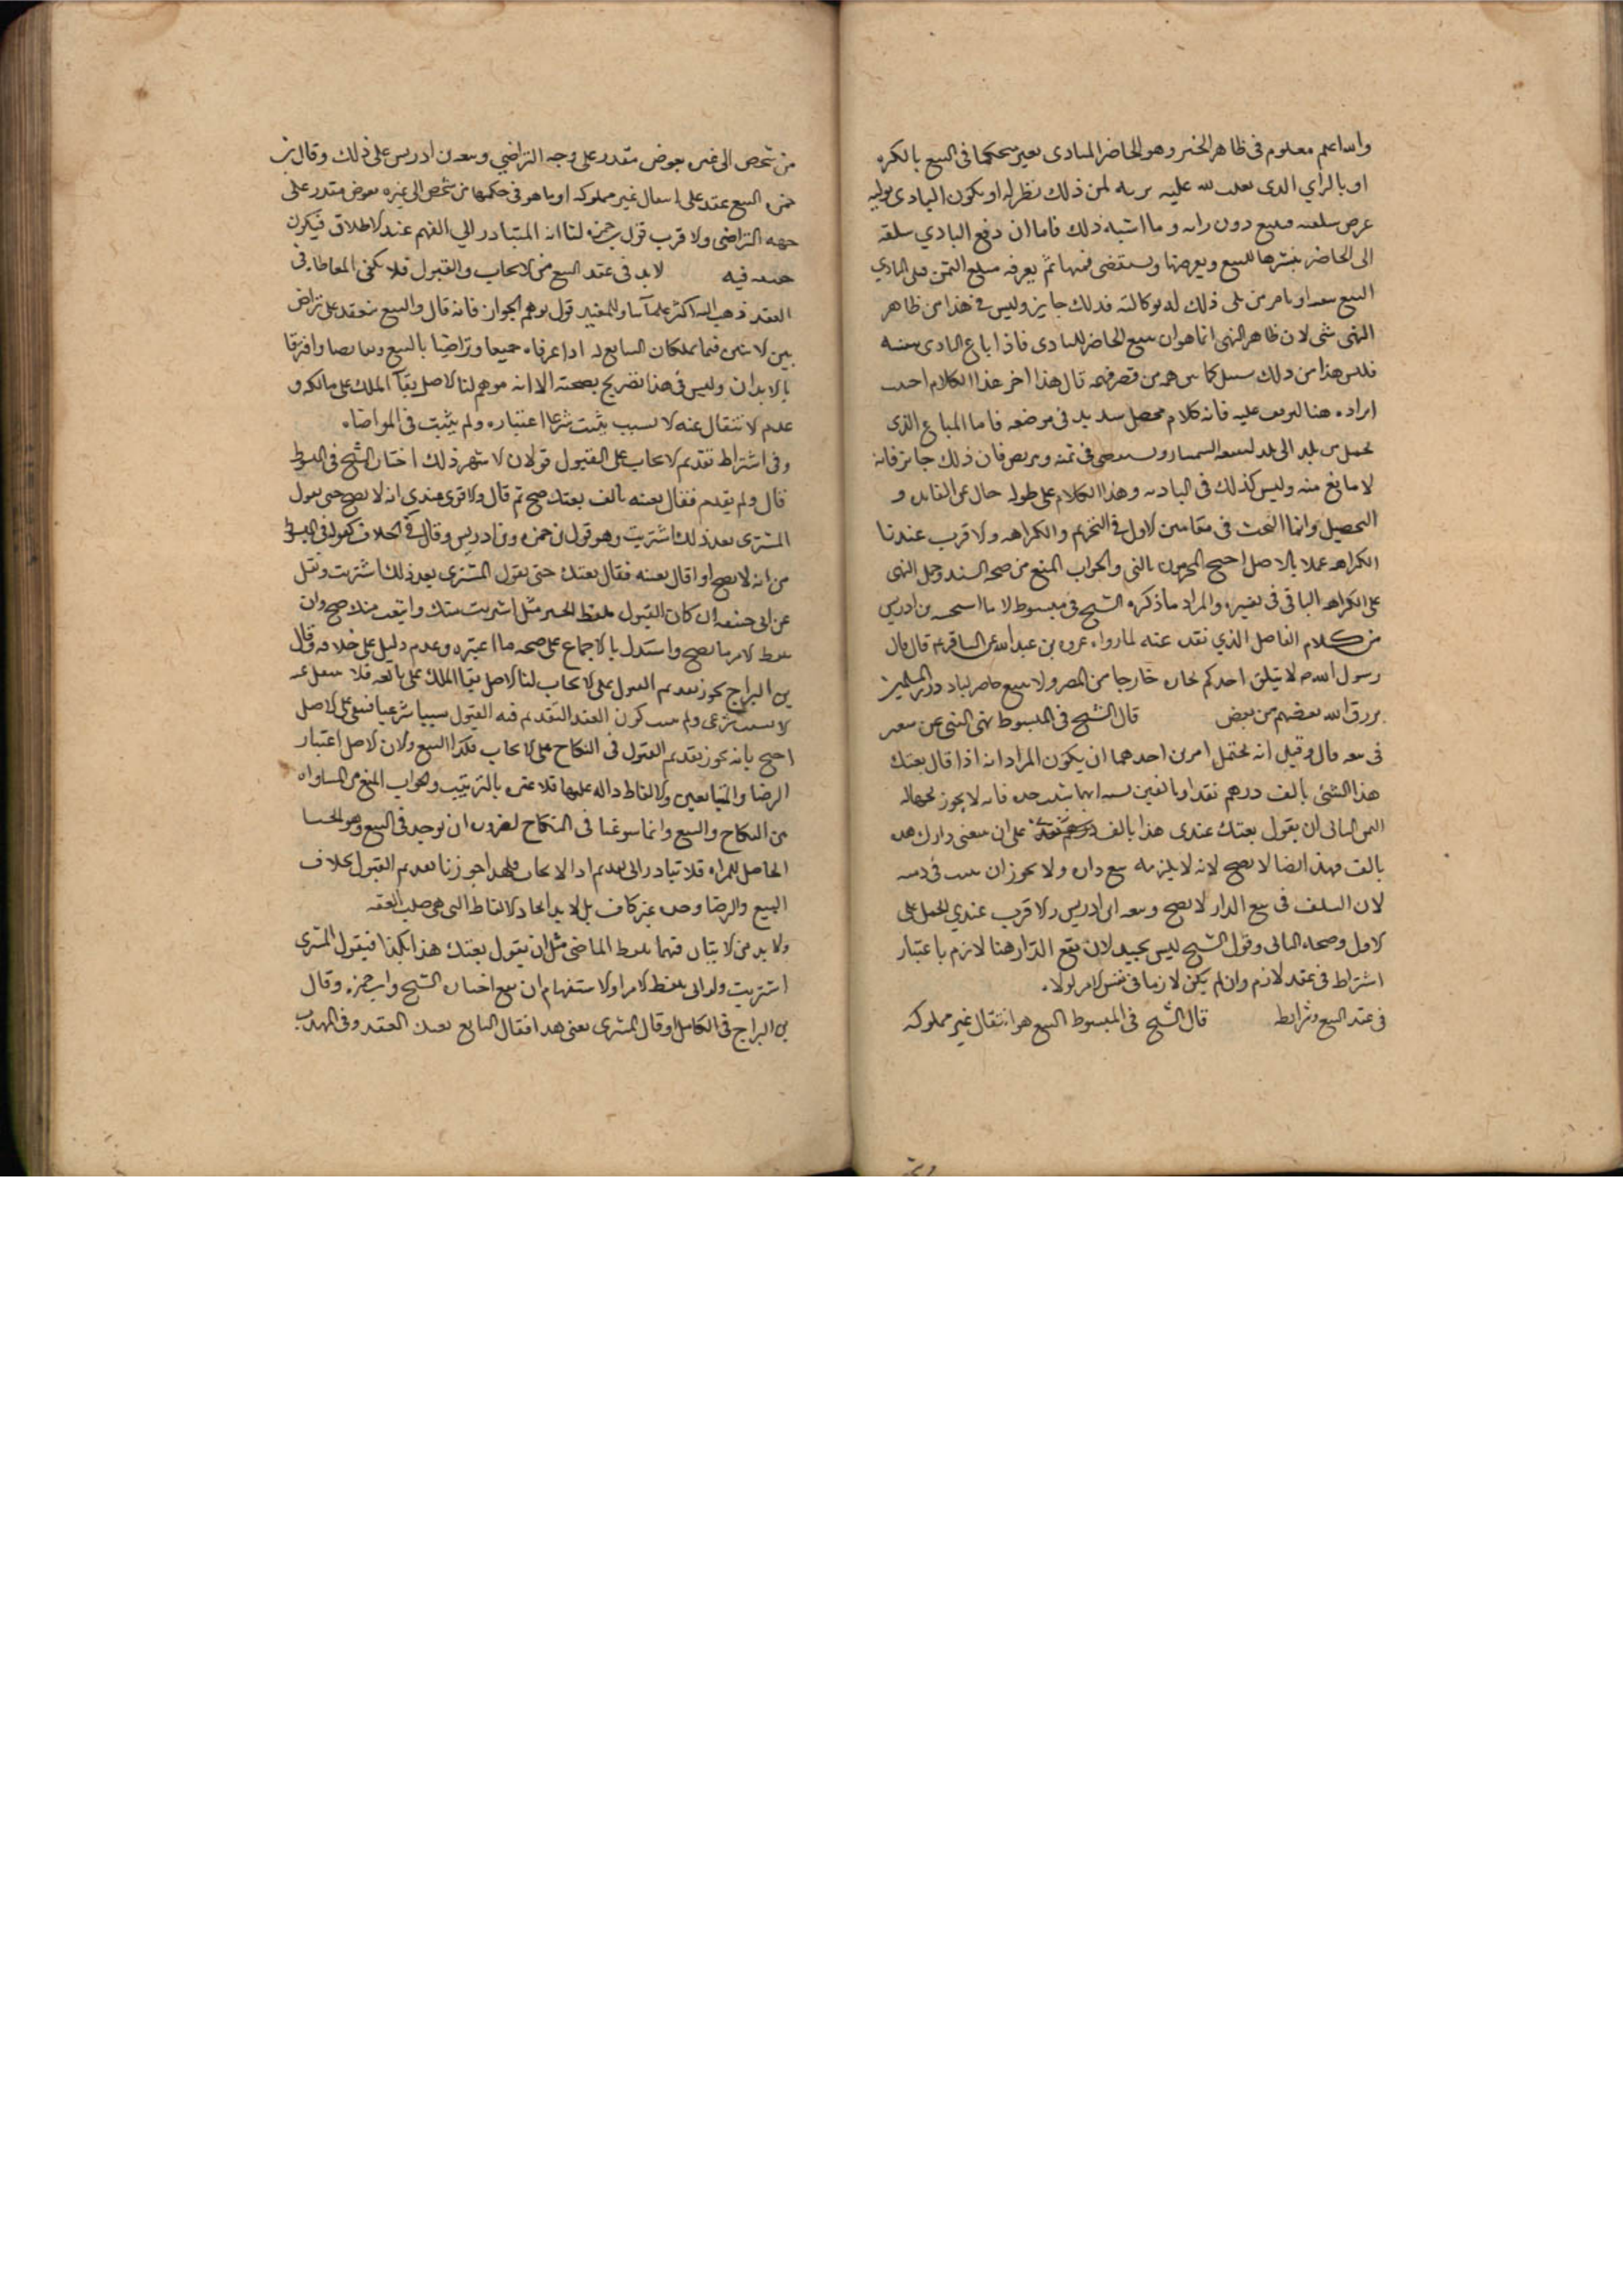 والله اعلم معلوم في ظاهر الخبر وهو الحاضر البادي بحكمها في البيع بالكره
او بالراي الذي يغلب عليه لمن ذلك نظر له او يكون البادي يوليه
عرض سلعته فيبيع دون رايه وما اشبه ذلك فاما ان دفع البادي سلعته
الى الحاضر ينشرها للبيع ويعرضها ويستقصي ثمنها ثم يعرفه مبلغ الثمن فيلي البادي
البيع بنفسه او يامر من يلي ذلك له بوكالته فذلك جايز وليس في هذا من ظاهر
النهي شي لان ظاهر النهي انما هو ان يبيع الحاضر للبادي فاذا باع البادي بنفسه
فليس هذا من ذلك بسبيل كما يتوهمه من قصر فهمه قال هذا اخر هذا الكلام احببت
ايراده هنا ليوقف عليه فانه كلام محصل سديد في موضعه فاما المتاع الذي
يحمل من بلد الى بلد ليبيعه السمسار ويستقصي في ثمنه ويتربص فان ذلك جايز فانه
لا مانع منه وليس كذلك في البادية وهذا الكلام على طوله خال عن الفايدة و
التحصيل وانما البحث في مقامين الاول في التحريم والكراهه والاقرب عندنا
الكراهه عملا بالاصل احتج المحرمون بالنهي والجواب المنع من صحة السند وحمل النهي
على الكراهه الباقي في تفسيره والمراد ما ذكره الشيخ في مبسوطه لا ما استحسنه بن ادريس
من كلام الفاضل الذي نقله عنه لما رواه عروه بن عبد الله عن الباقر ع قال قال
رسول الله ص لا يتلقى احدكم تجارة خارجا من المصر ولا يبيع حاضر لباد ذروا المسلمين
يرزق الله بعضهم من بعض قال الشيخ في المبسوط نهى النبي عن بيعين
في بيعه قال وقيل انه يحتمل امرين احدهما ان يكون المراد انه اذا قال بعتك
هذا الشيء بالف درهم نقدا وبالفين نسيه بايهما شيت خذه فانه لا يجوز لجهاله
الثمن الثاني ان يقول بعتك عبدي هذا بالف درهم على ان تبيعني دارك هذه
بالف فهذا ايضا لا يصح لانه لا يلزمه بيع داره ولا يجوز ان يثبت في ذمته
لان السلف في بيع الدار لا يصح وتبعه ابن ادريس والاقرب عندي الحمل على
الاول وصحة الثاني وقول الشيخ ليس بجيد لان بيع الدار هنا لازم باعتبار
اشتراطه في عقد لازم وان لم يكن لازما في نفس الامر لولاه
في عقد البيع وشرايطه قال الشيخ في المبسوط البيع هو انتقال عين مملوكه
من شخص الى غيره بعوض مقدر على وجه التراضي وتبعه بن ادريس على ذلك وقال بن
حمزه البيع عقد على انتقال عين مملوكه او ما هو في حكمها من شخص الى غيره بعوض مقدر على
جهه التراضي والاقرب قول بن حمزه لنا انه المتبادر الي الفهم عند الاطلاق فيكون
حقيقه فيه لا بد في عقد البيع من الايجاب والقبول فلا تكفي المعاطاه في
العقد ذهب اليه اكثر علمآئنا وللمفيد قول يوهم الجواز فانه قال والبيع ينعقد على تراض
بين الاثنين فيما يملكان التبايع له اذا عرفاه جميعا وتراضيا بالبيع وتقابضا وافترقا
بالابدان وليس في هذا تصريح بصحته الا انه موهم لنا الاصل بقآء الملك على مالكه و
عدم الانتقال عنه الا بسبب يثبت شرعا اعتباره ولم يثبت في المعاطاه
وفي اشتراط تقديم الايجاب على القبول قولان الاشهر ذلك اختاره الشيخ في المبسوط
قال ولم يقدم فقال بعنيه بالف بعتك صح ثم قال والاقوى عندي انه لا يصح حتى يقول
المشتري بعد ذلك اشتريت وهو قول بن حمزه وبن ادريس وقال في الخلاف كقوله في المبسوط
من انه لا يصح اذا قال بعنيه فقال بعتك حتى يقول المشتري بعد ذلك اشتريت ونقل
عن ابي حنيفه ان كان القبول بلفظ الخبر مثل اشتريت منك وابتعت منك صح وان
بلفظ الامر ما يصح واستدل بالاجماع على صحه ما اعتبره وعدم دليل على خلافه وقال
بن البراج يجوز تقديم القبول على الايجاب لنا الاصل بقا الملك على بائعه فلا ينتقل عنه
الا بسبب شرعي ولم يثبت كون العقد المتقدم فيه القبول سببا شرعيا فينبغي على الاصل
احتج بانه يجوز تقديم القبول في النكاح على الايجاب فكذا البيع ولان الاصل اعتبار
الرضا من المتبايعين والالفاظ داله عليها فلا عبره بالترتيب والجواب المنع من المساواه
بين النكاح والبيع وانما سوغنا في النكاح لضروره ان توجد في البيع وهو الحيا
الحاصل للمراه فلا تبادر الى تقديم الايجاب فلهذا جوزنا تقديم القبول بخلاف
البيع والرضا وحده غير كاف بل لا بد من الالفاظ التي هي صلب العقد
ولا بد من الاتيان فيهما بلفظ الماضي مثل ان يقول بعتك هذا بكذا فيقول المشتري
اشتريت ولو اتى بلفظ الامر او الاستفهام لم يقع اختاره الشيخ وابن حمزه وقال
بن البراج في الكامل لو قال المشتري بعني هذا فقال البايع بعتك انعقد وفي المهذب